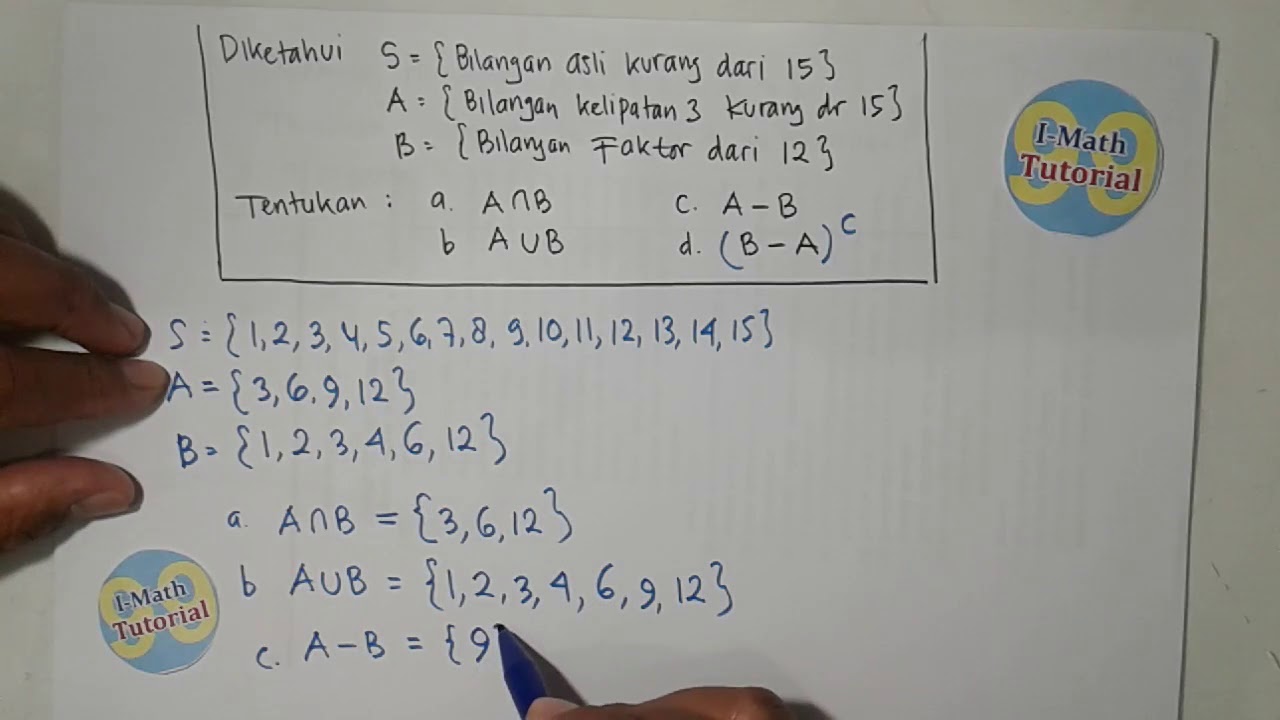 Diketahui S = { Bilangan asli kurang dari 15 }
A = { Bilangan kelipatan 3 kurang dr 15 }
B = { Bilangan Faktor dari 12 }
Tentukan : a. A ∩ B c. A - B
b A ∪ B d. (B - A)ᶜ
I-Math
Tutorial
S = { 1, 2, 3, 4, 5, 6, 7, 8, 9, 10, 11, 12, 13, 14, 15 }
A = { 3, 6, 9, 12 }
B = { 1, 2, 3, 4, 6, 12 }
a. A ∩ B = { 3, 6, 12 }
b A ∪ B = { 1, 2, 3, 4, 6, 9, 12 }
c. A - B = { 9
I-Math
Tutorial